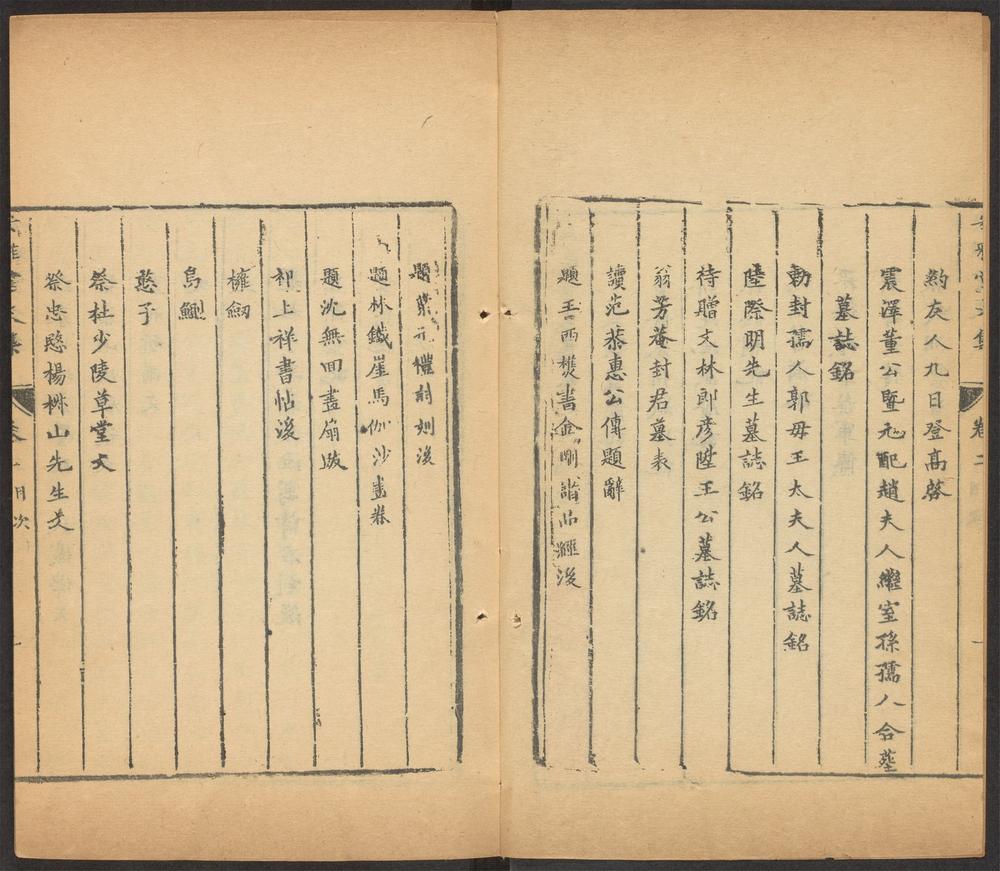 卷二
一
約友人九日登高啓
震澤董公曁元配趙夫人繼室孫孺人合葬
墓誌銘
勅封孺人郭母王太夫人墓誌銘
陸際明先生墓誌銘
待贈文林郎彦陞王公墓誌銘
翁芳菴封君墓表
讀范恭惠公傳題辭
題王西樵書金剛諸品經後
題 元禮詩刻後
題林鐵崖馬伽沙畫卷
題沈無回畫扇跋
祁止祥書帖後
擁劒
烏鰂
憨子
祭杜少陵草堂文
祭忠愍楊椒山先生文
目次
一